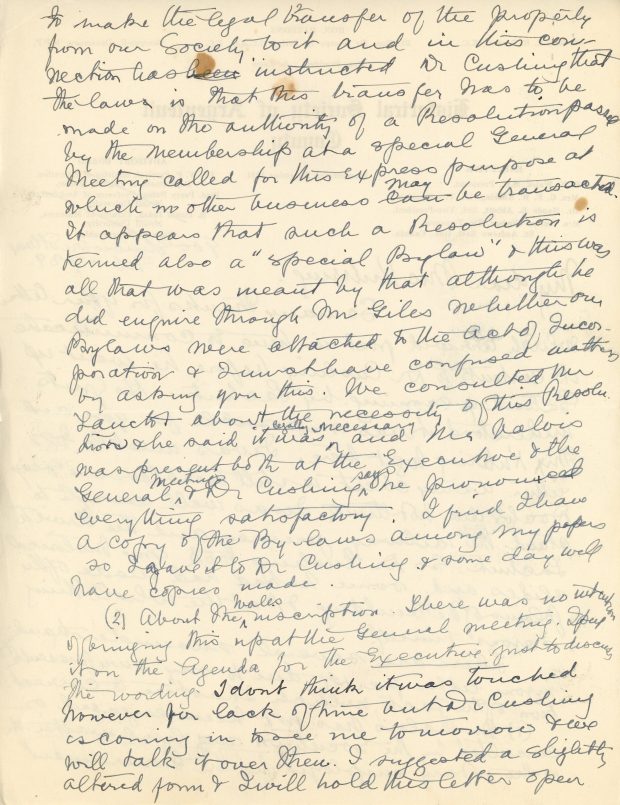 2
to make the legal transfer of the property
from our Society to it and in this con-
nection has been instructed Dr Cushing that
the law is that this transfer has to be
made on the authority of a Resolution passed
by the membership at a special General
Meeting called for this express purpose at
which no other business can may be transacted.
It appears that such a Resolution is
termed also a "special Bylaw" & this was
all that was meant by that although he
did enquire through Mr Giles whether our
Bylaws were attached to the Act of Incor-
poration & I must have confused matters
by asking you this. We consulted Mr
about the necessity of this Resolu-
tion & he said it was legally necessary and Mr
was present both at the Executive & the
General Meeting & Dr Cushing says he pronounced
everything satisfactory. I find I have
a copy of the By-laws among my papers
so I gave it to Dr Cushing & some day will
have copies made.
(2) About the Wales inscription. There was no intention
of bringing this up at the General meeting. I put
it on the Agenda for the Executive just to discuss
the wording. I dont think it was touched
however for lack of time but Dr Cushing
is coming in to see me tomorrow & we
will talk it over then. I suggested a slightly
altered form & I will hold this letter open